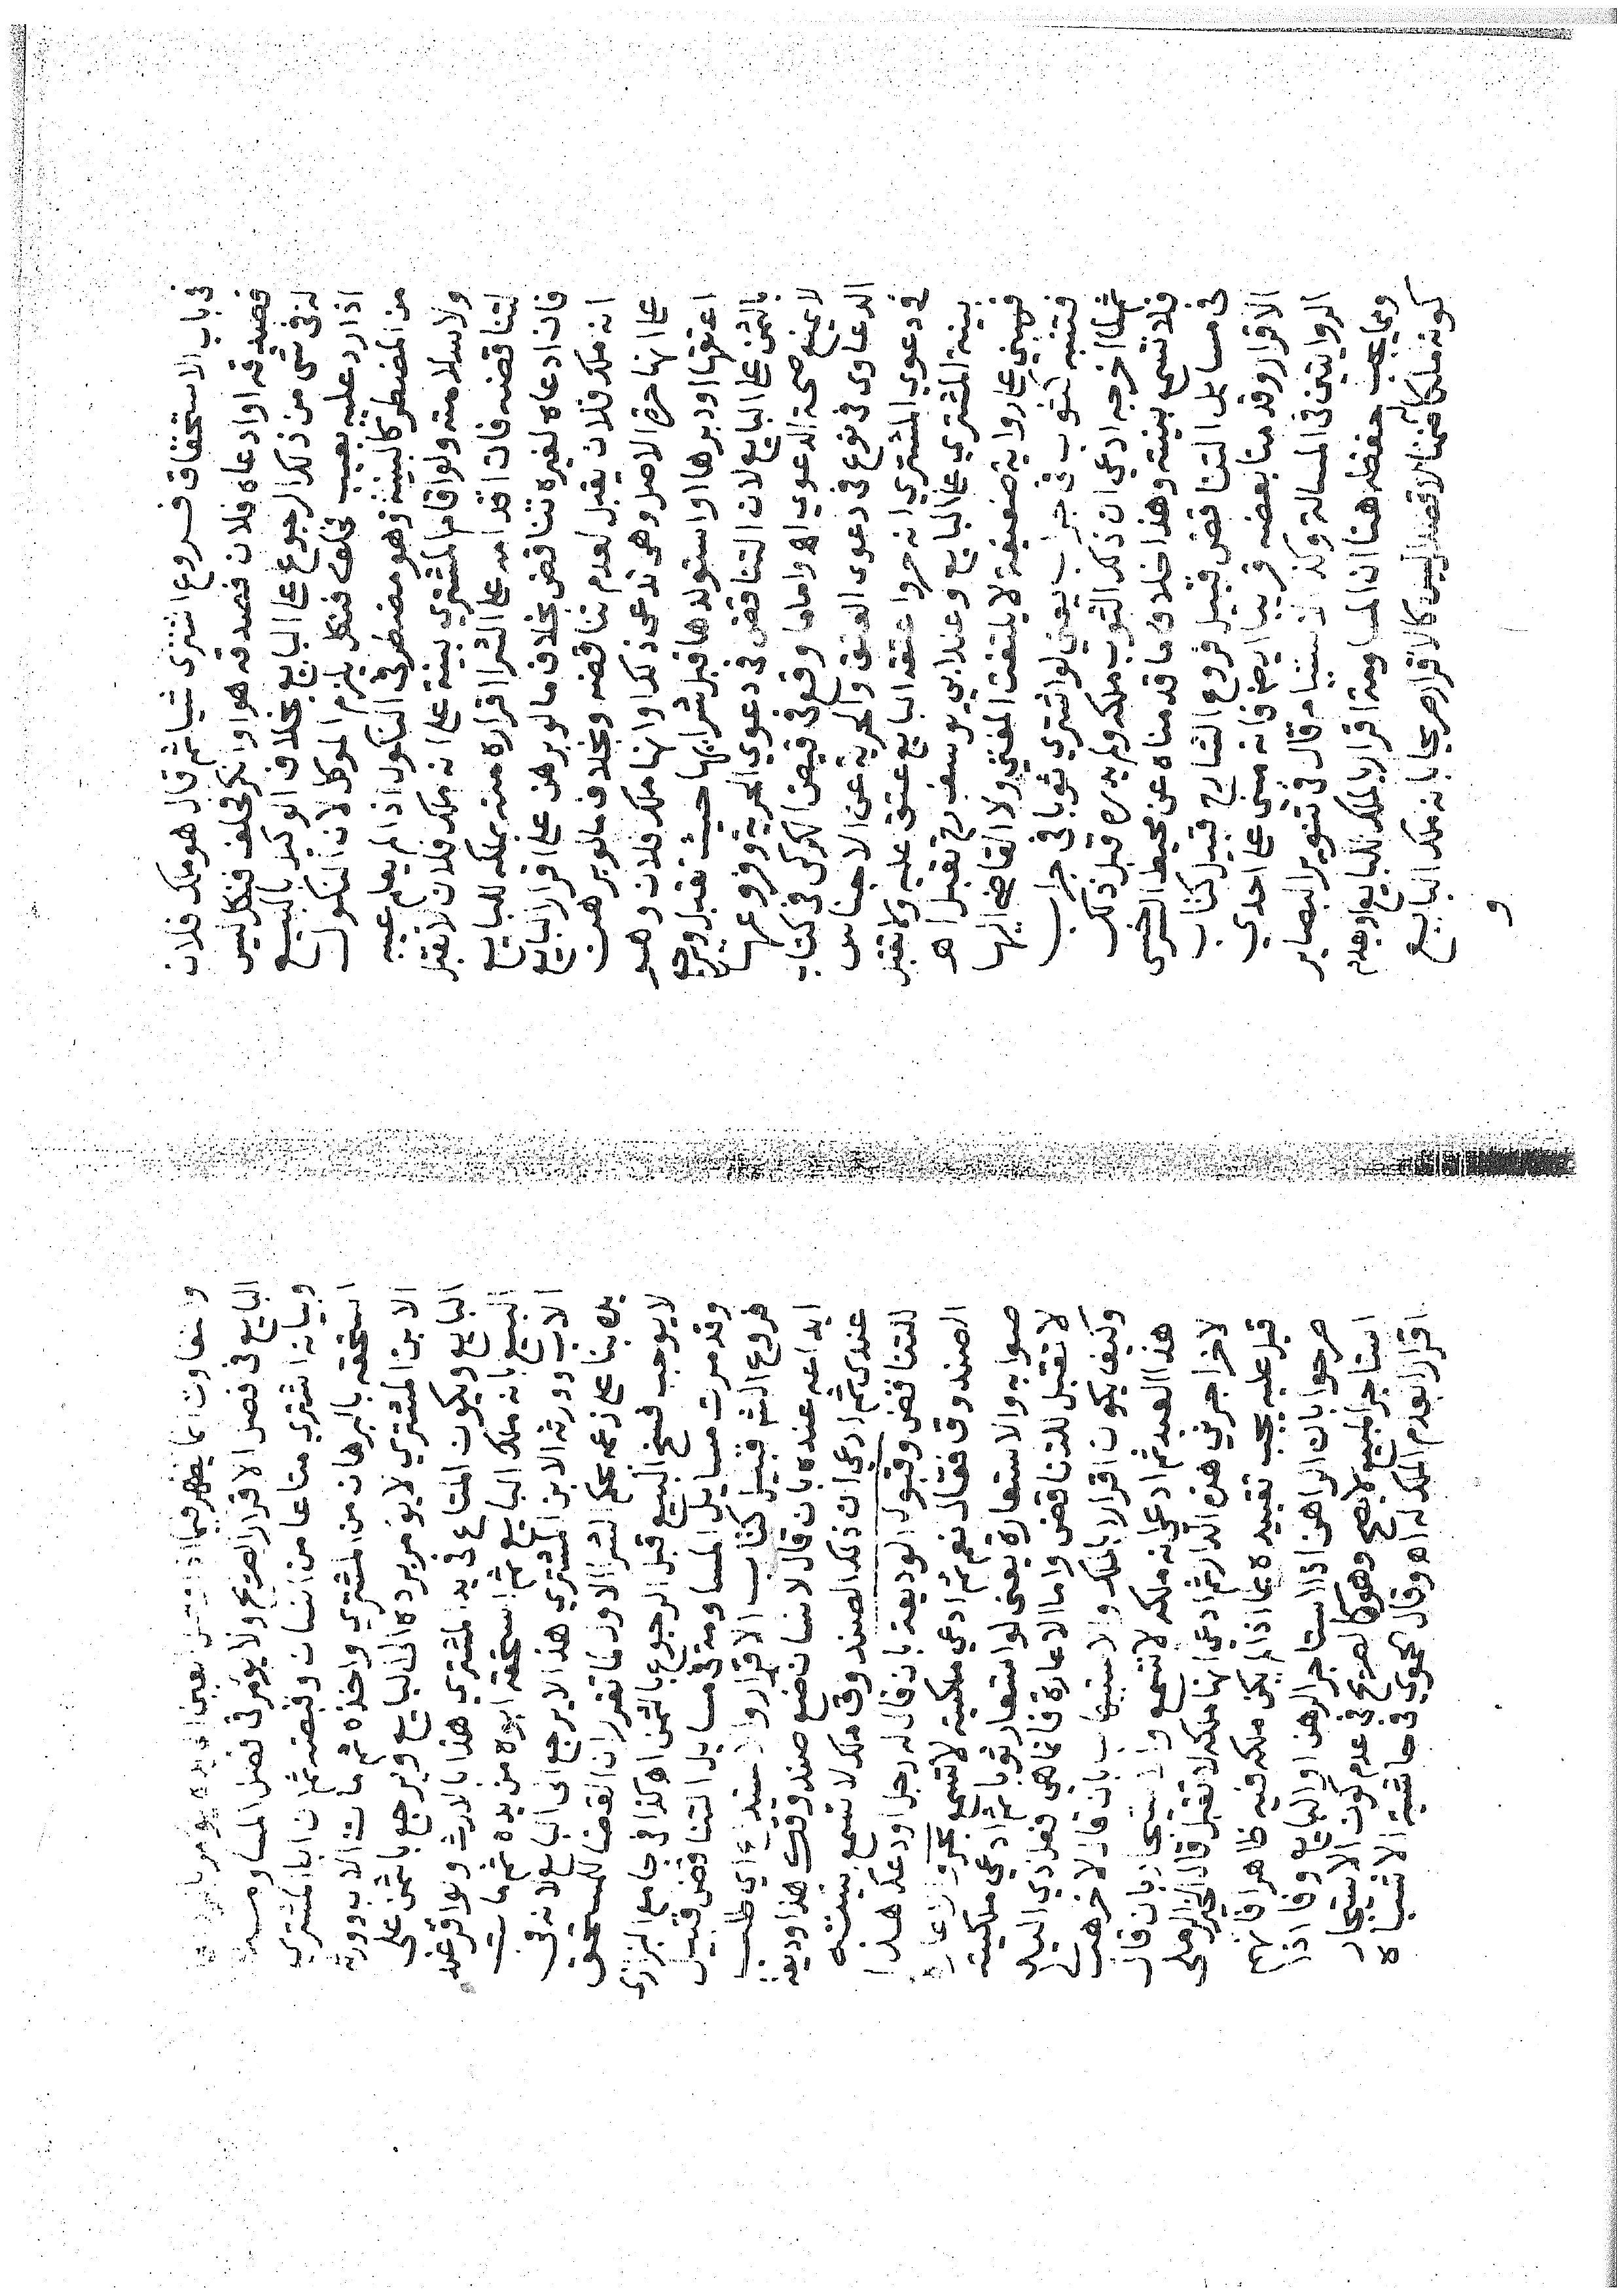 في باب الاستحقاق فروع اشترى شيا ثم قال هو ملك فلان
فصدقه او ادعاه فلان فصدقه هو او انكر فحلف فنكل ليس
له في شي من ذلك الرجوع على البايع بخلاف الوكيل بالبيع
اذا رد عليه بعيب فحلف فنكل يلزم الموكل لان النكول
من المضطر كالبينة وهو مضطر في النكول اذا لم يعلم عيبه
ولا سلامته ولو اقام المشتري بينة على انه ملك فلان لا تقبل
لتناقضه فان اقدامه على الشرا اقرار منه بملكه للبايع
فان ادعاه لغيره تناقض بخلاف ما لو برهن على اقرار البايع
انه ملك فلان يقبل لعدم تناقضه وبخلاف ما لو برهنت
على انها حرة الاصل وهي تدعي ذلك او انها ملك فلان وهو
اعتقها او دبرها او استولدها قبل شرايها حيث تقبل ويرجع
بالثمن على البايع لان التناقض في دعوى الحرية وفروعها
لا يمنع صحة الدعوي اه واما ما وقع في فيض الكركي في كتاب
الدعاوى في نوع في دعوى العتق والحرية عن الاجناس
في دعوي المشتري انه حر واعتقه البايع عتق عليه ولا تقبل
بينة المشتري على البايع وعند ابي يوسف رح تقبل اه
فهبني على رواية ضعيفة لا يلتفت المفتي ولا القاضي اليها
فتنبه لثوب في جراب يعني لو اشتري ثوبا في جراب
فلما اخرجه ادعى ان ذلك الثوب ملكه ولم يدره قبل ذلك
فلا تسمع بينته وهذا خلاف ما قدمناه عن محيط السرخسي
في مسايل التناقض قبيل فروع الشارح قبيل كتاب
الاقرار وقدمنا بعضه قريبا ايضا فانه مبني على احدي
الروايتين في المسالة وكذا الاستيام قال في تنوير البصاير
ومما يجب حفظه هنا ان المساومة اقرار بالملك للبايع او بعدم
كونه ملكا له ضمنا لا قصدا وليس كالاقرار صريحا بانه ملك البايع
و
والتفاوت انما يظهر فيما اذا
البايع في فصل الاقرار الصريح ولا يومر في فصل المساومة
وبيانه اشتري متاعا من انسان وقبضه ثم ان ابا المشتري
استحقه بالبرهان من المشتري واخذه ثم مات الاب وورثه
الابن المشتري لا يومر برده الى البايع ويرجع بالثمن على
البايع ويكون المتاع في يد المشتري هذا بالارث ولو اقر عند
البيع بانه ملك البايع ثم استحقه ابوه من يده ثم مات
الاب وورثه الابن المشتري هذا لا يرجع الى البايع لانه في
يده بنا على زعمه بحكم الشرا الاول لما تقرر ان القضا للمستحق
لا يوجب فسخ البيع قبل الرجوع بالثمن اه كذا في جامع البزازي
وقد مرت مسايل المساومة في مسايل التناقض قبيل
فروع الشم قبيل كتاب الاقرار والاستيداع اي طلب
ايداعه عنده بان قال لانسان ضع صندوقك هذا وديعة
عندي ثم ادعي ان ذلك الصندوق ملكه لا تسمع بينته
للتناقض وقبول الوديعة بان قال له رجل اودعك هذا
الصندوق فقال نعم ثم ادعي ملكيته لا تسمع بحر والاعارة
صوابه والاستعارة يعني لو استعار ثوبا ثم ادعي ملكيته
لا تقبل للتناقض واما الاعارة فانما هي فعل ذي اليد
وكيف يكون اقرارا بالملك والاستيهاب بان قال لاخر هب لي
هذا العبد ثم ادعى انه ملكه لا تسمع والاستيجار بان قال
لاخر اجرني هذه الدار ثم ادعي انها ملكه لا تقبل قال الخير الرملي
قبل عليه يجب تقييده بما اذا لم يكن ملكه فيه ظاهرا فانهم
صرحوا بان الراهن اذا استاجر الرهن او البايع وفا اذا
استاجر المبيع لا يصح وهو كالصريح في عدم كون الاستيجار
اقرارا بعدم الملك له اه وقال الحموي في حاشية الاشباه